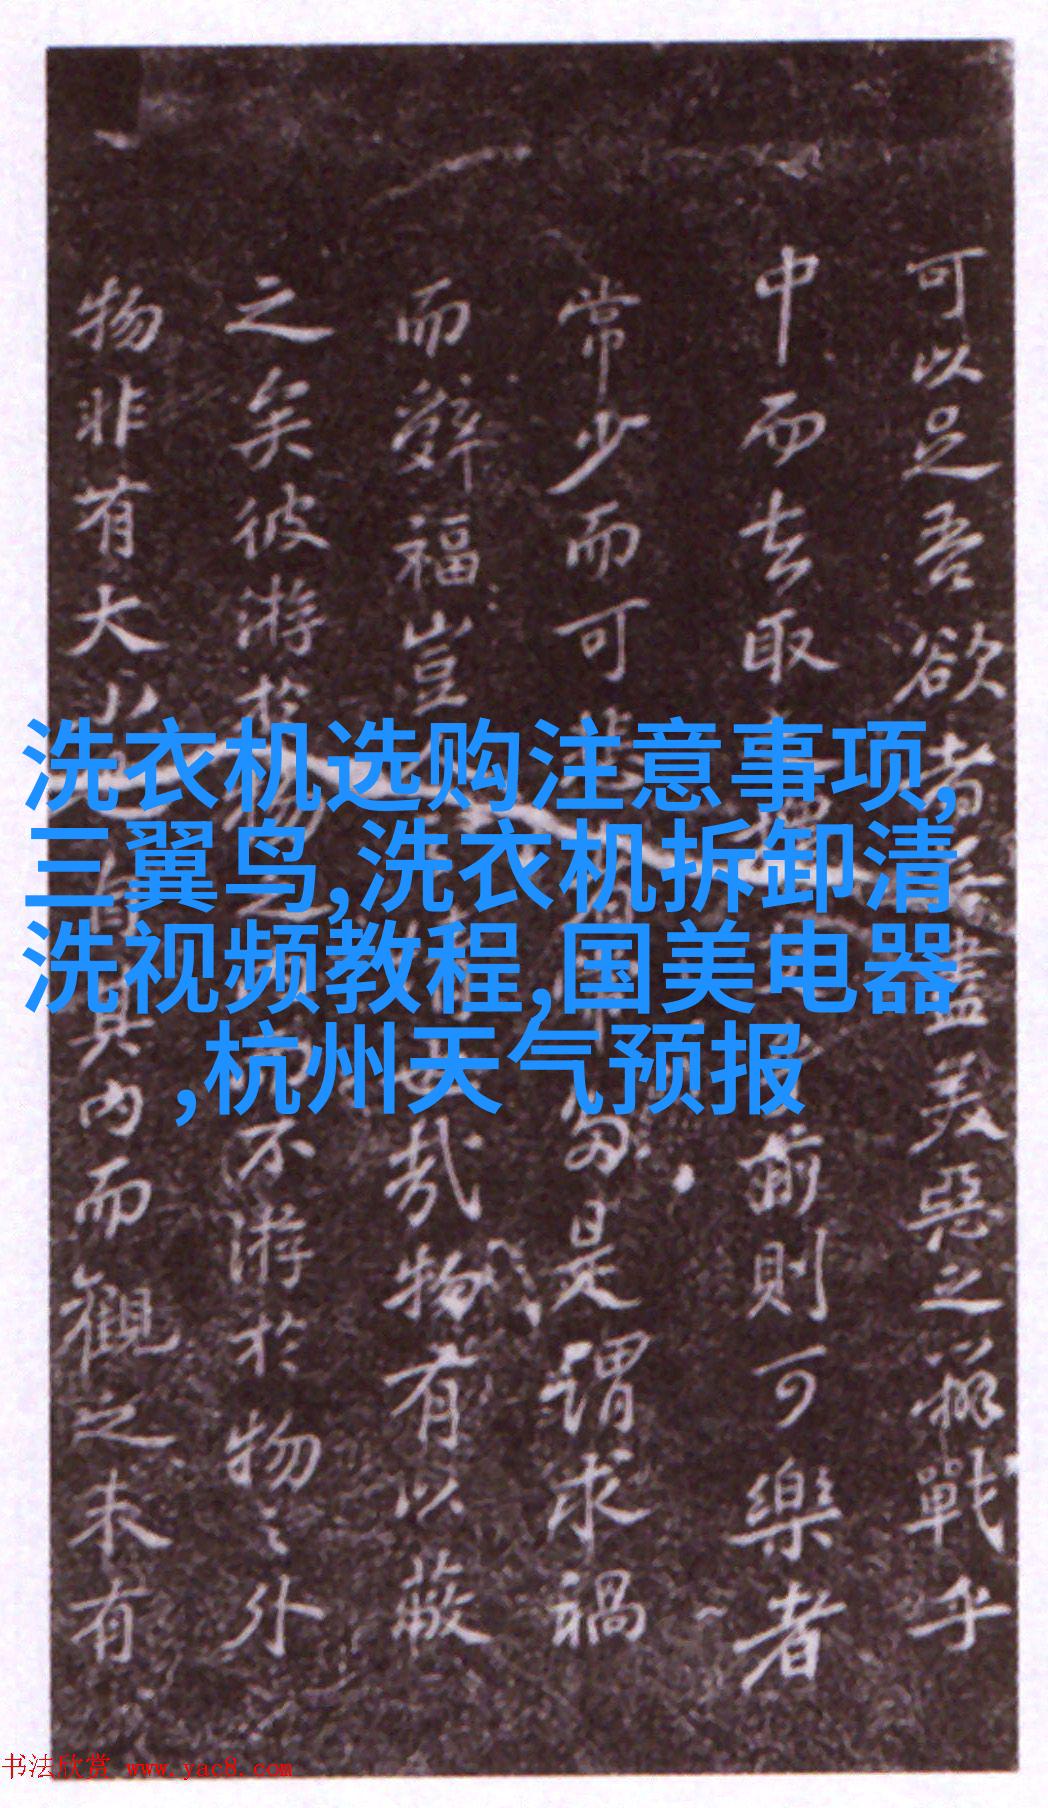 洗衣机选购注意事项,
三翼鸟,洗衣机拆卸清
洗视频教程,国美电器
,杭州天气预报
可以足吾欲者盡美惡之辨戰乎
中而去取前則可樂者
常少而可是謂求禍
而辭福豈哉物有以蔽
之矣彼游於不游於物之外
物非有大小其内而觀之未有
书法欣赏 www.yac8.com